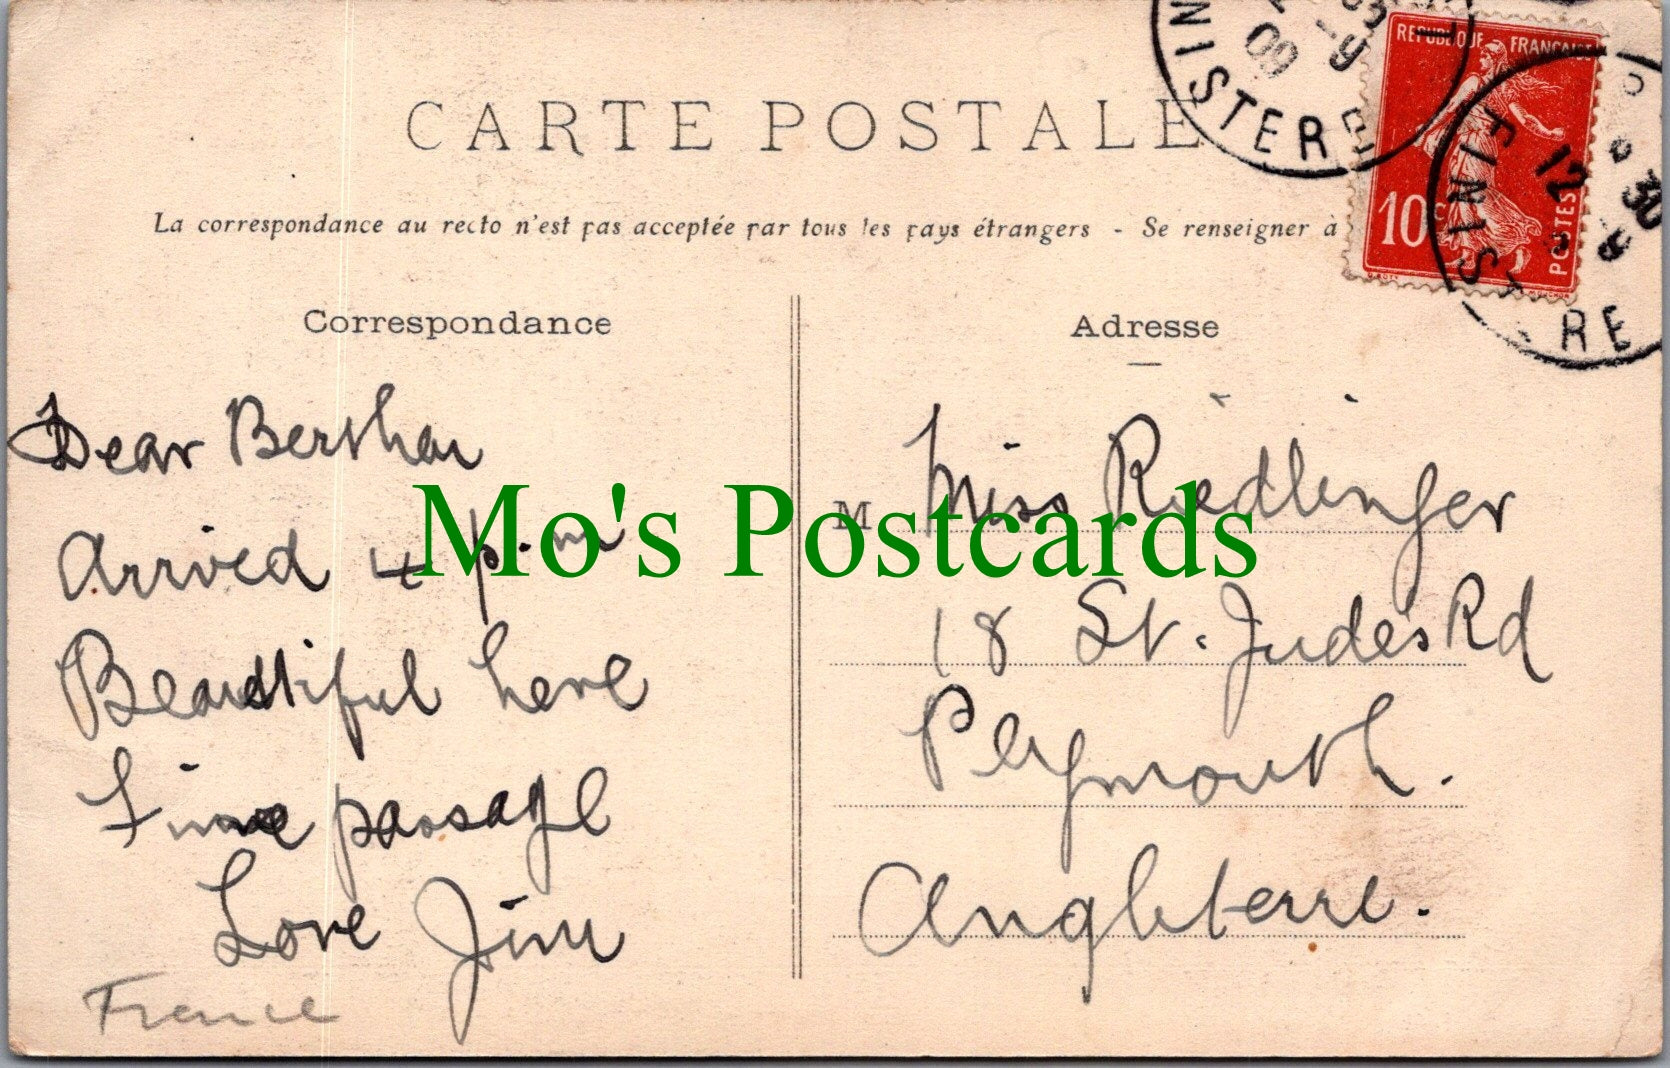 CARTE POSTALE
La correspondance au recto n'est pas acceptée par tous les pays étrangers - Se renseigner à
Correspondance
Dear Bertha
Arrived 4 p.m
Beautiful here
Fine passage
Love Jim
France
Adresse
M Miss Riedlinger
18 St. Jude's Rd
Plymouth.
Angleterre.
REPUBLIQUE FRANCAISE
10c
POSTES
FINISTERE
09
FINISTERE
12
30
Mo's Postcards